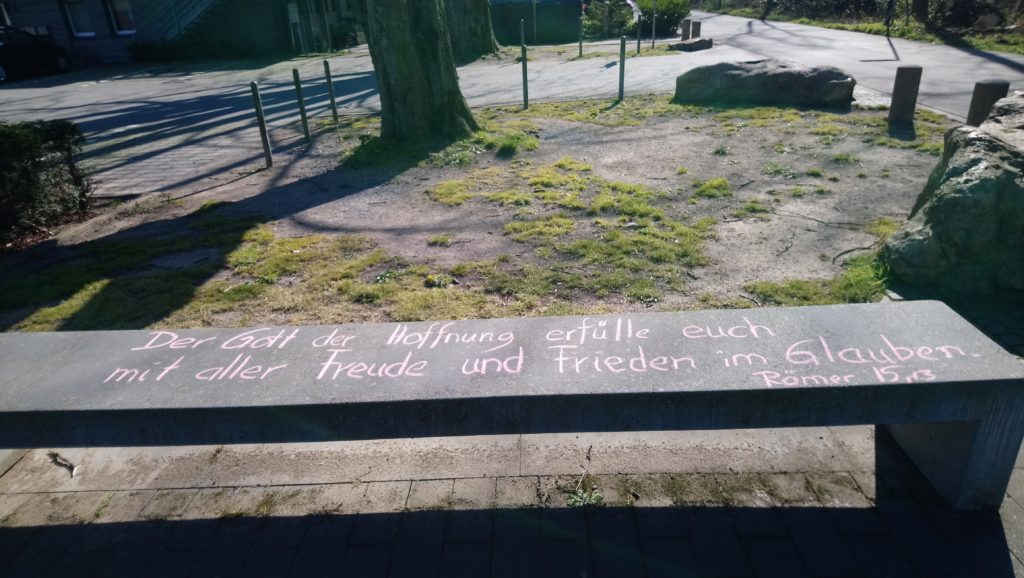 Der Gott der Hoffnung erfülle euch
mit aller Freude und Frieden im Glauben.
Römer 15,13